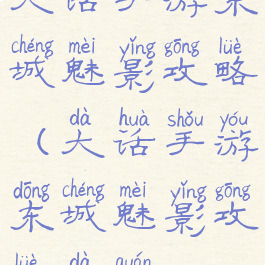 chéng mèi yǐng gōng lüè
城魅影攻略
dà huà shǒu yóu
（大话手游
dōng chéng mèi yǐng gōng
东城魅影攻
lüè dà quán